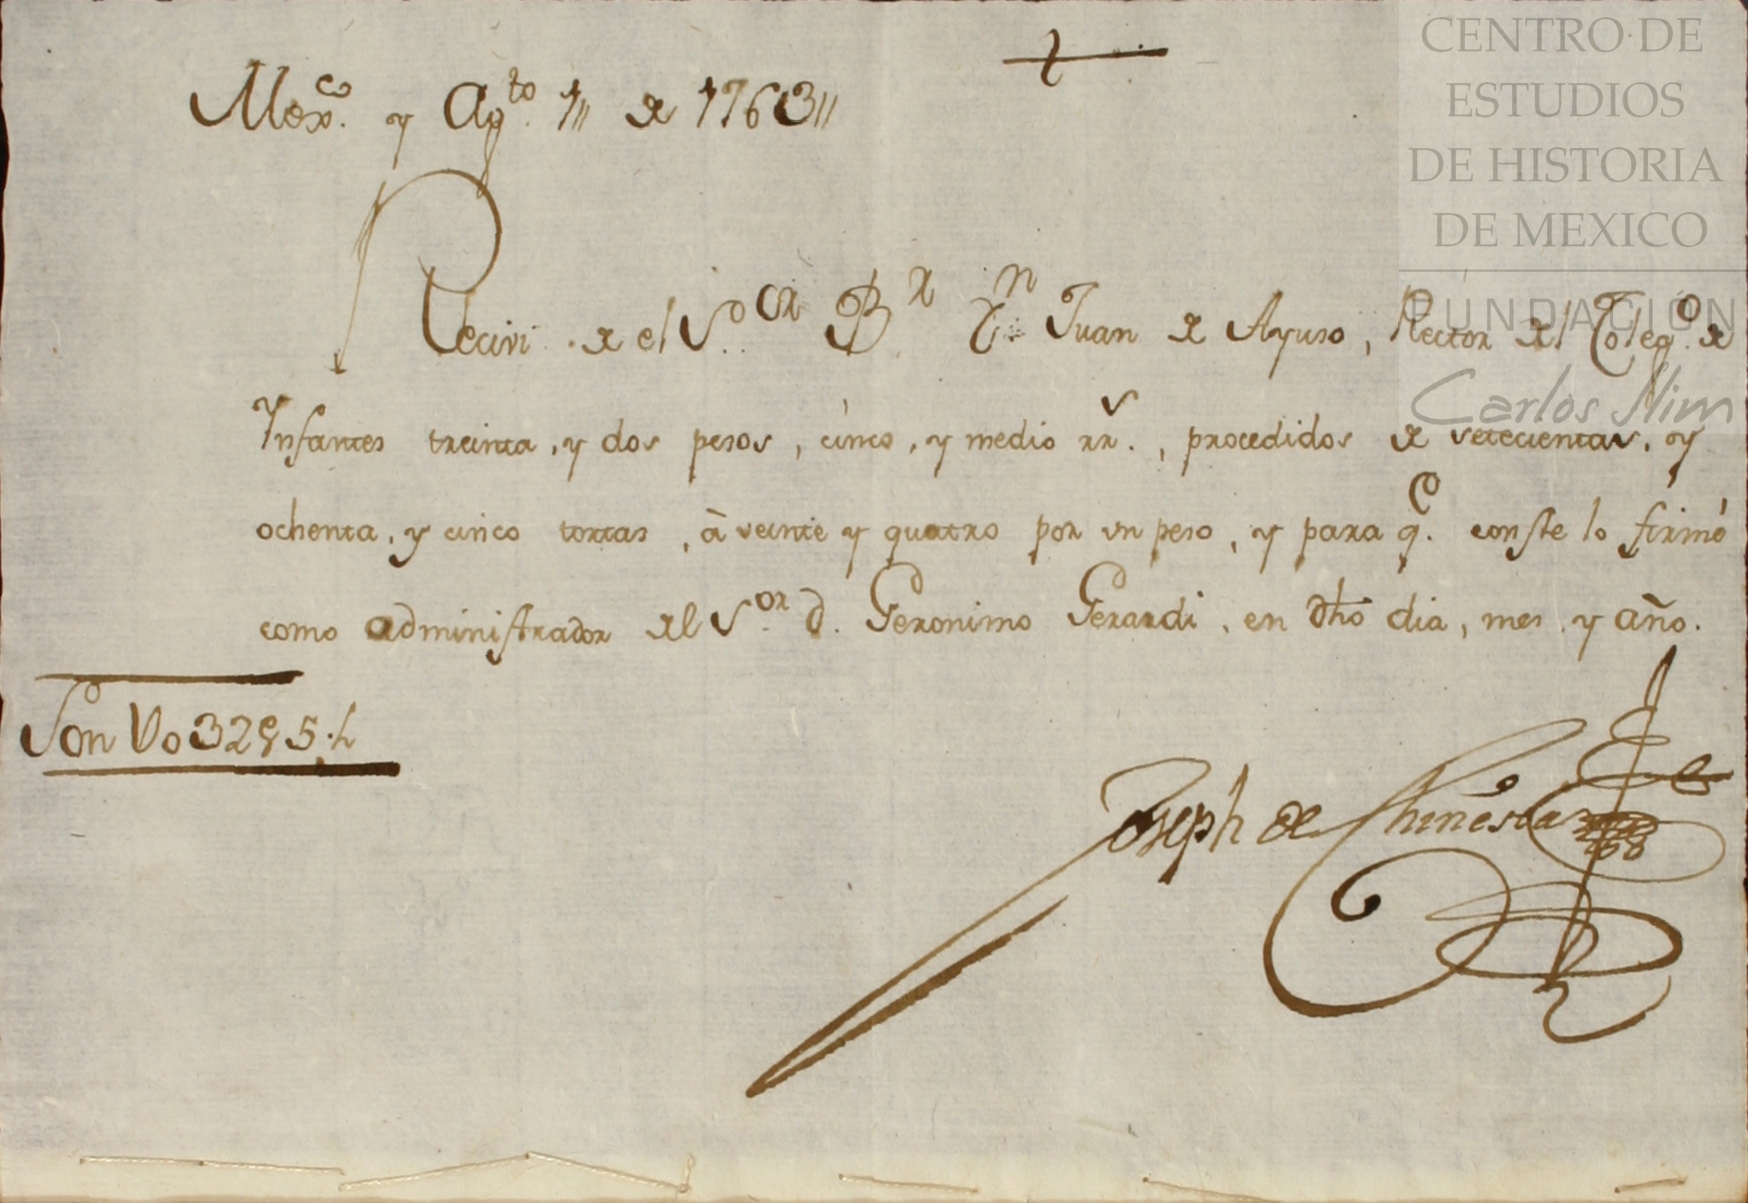 CENTRO DE
ESTUDIOS
DE HISTORIA
DE MEXICO
FUNDACIÓN
Carlos Slim
Mexco. y Agto. 1 de 1763
Recivi de el Sor Br Dn Juan de Ayuso, Rector del Colego. de
Infantes treinta, y dos pesos, cinco, y medio rrs., procedidos de setecientas, y
ochenta, y cinco tortas, à veinte y quatro por un peso, y para qe. conste lo firmé
como administrador del Sor. D. Geronimo Gerardi, en dho dia, mes, y año.
Son Vo 32 ps 5.½
Joseph de